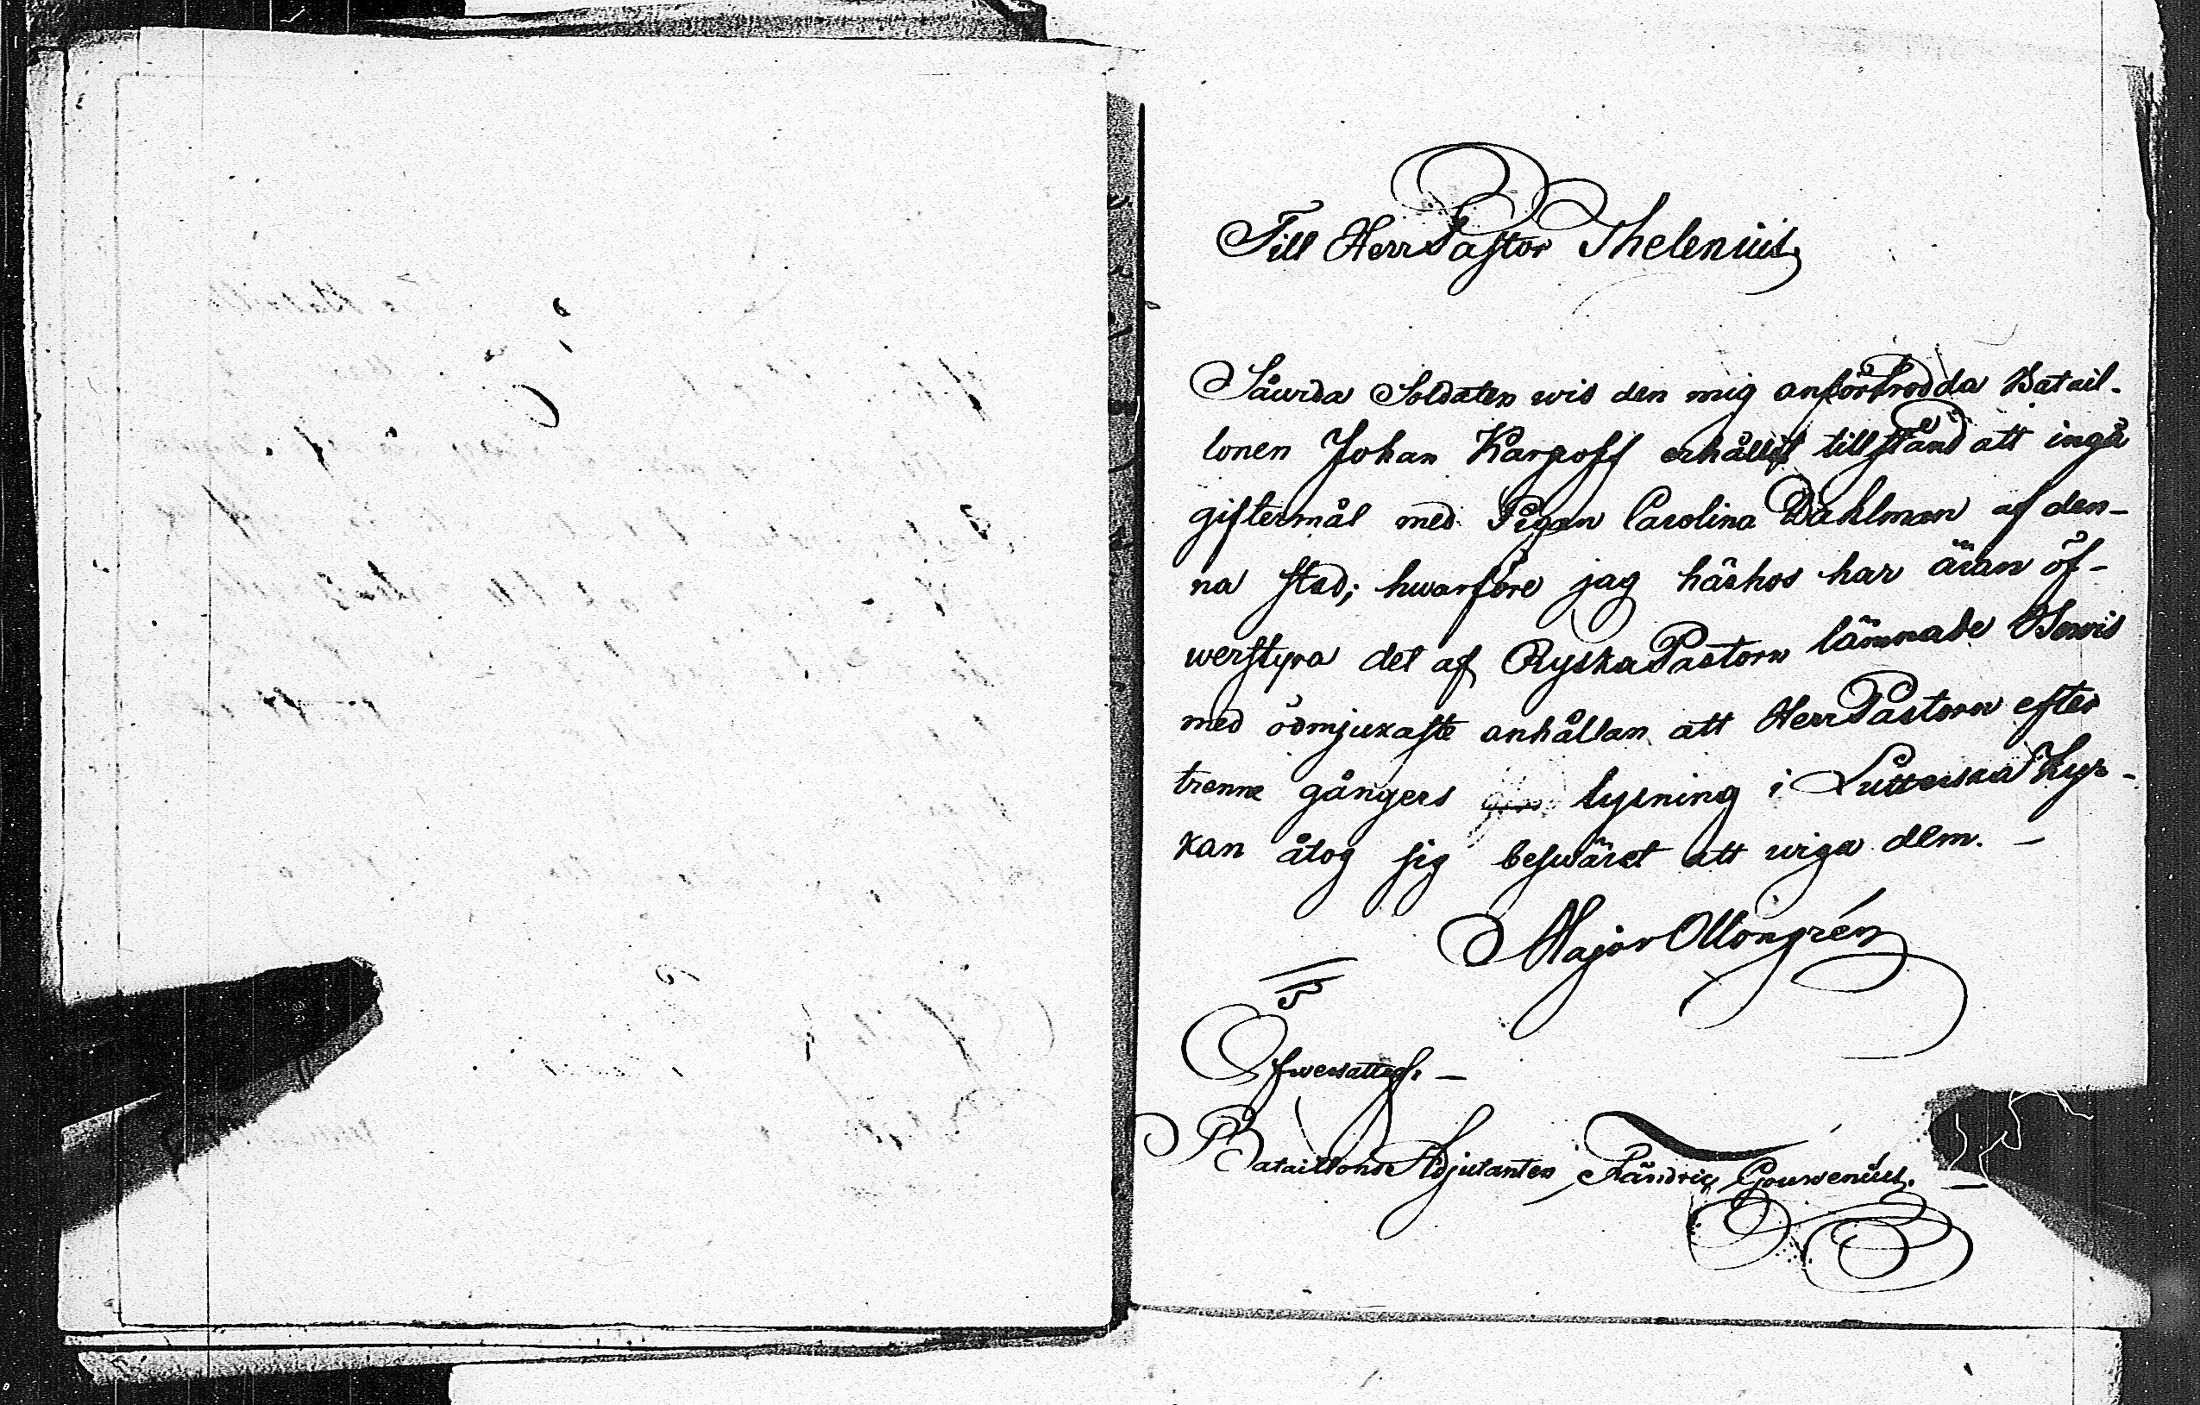 Till Herr Pastor Thelenius
Såwida Soldaten wid den mig anförtrodda Batail-
lonen Johan Karpoff erhållit tillstånd att ingå
giftermål med Pigan Carolina Dahlman af den-
na stad; hwarföre jag härhos har äran öf-
werstyra det af Ryska Pastorn lämnade Bewis
med ödmjukaste anhållan att Herr Pastorn efter
trenne gångers lysning i Lutterska Kyr-
kan åtog sig beswäret att wiga dem. —
Major Ottongrén
Öfwersattes: —
Bataillons Adjutanten, Fändric